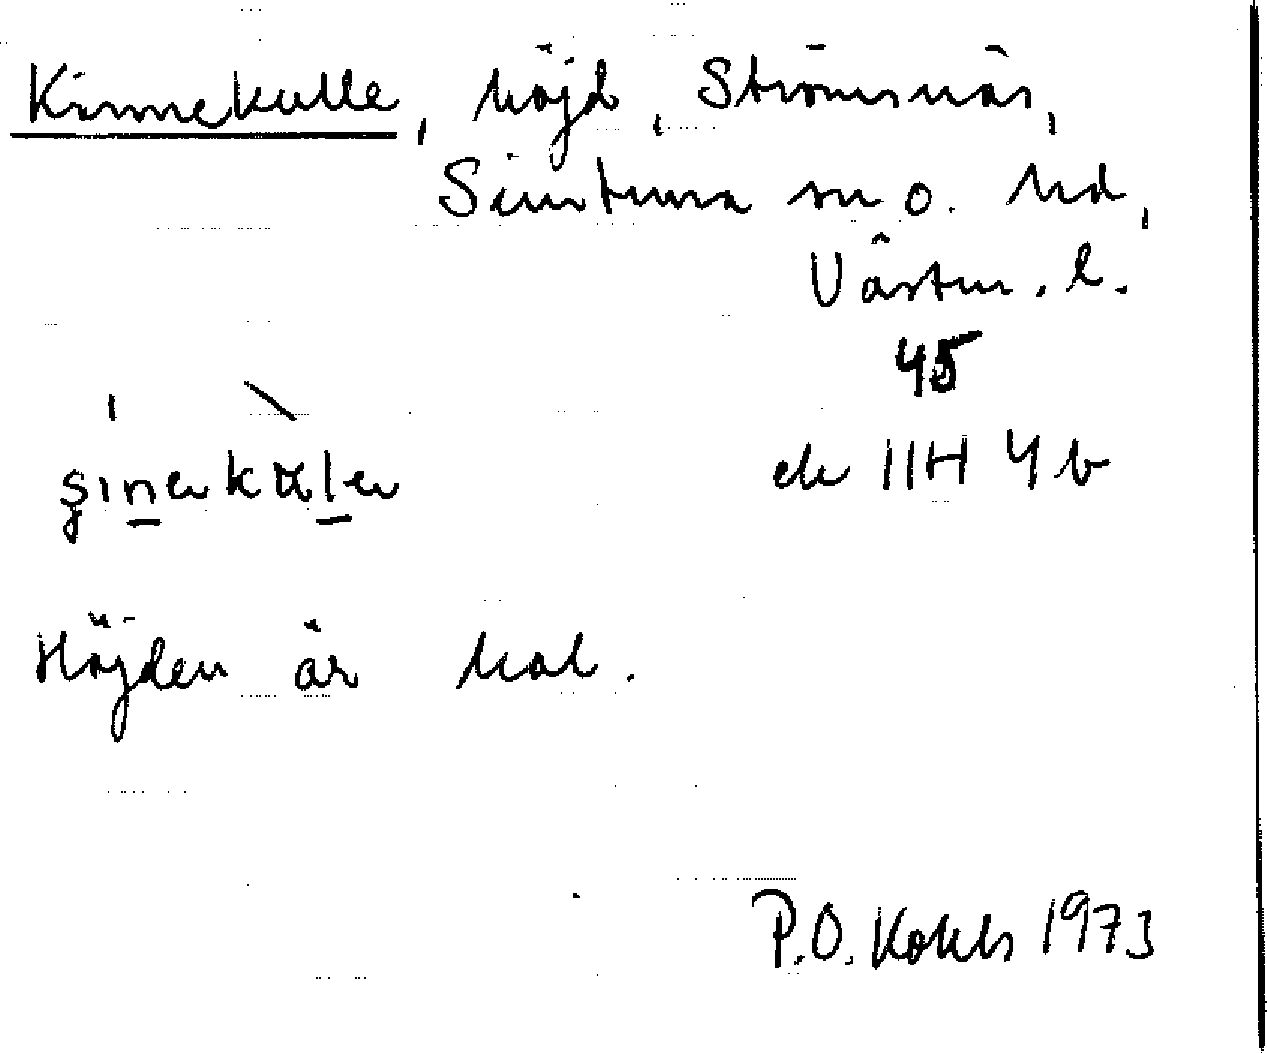 Kinnekulle, höjd, Strömsnäs,
Simtuna sn o. hd,
Västm. l.
45
ek 11H 4b
Höjden är kal.
P.O. Kohls 1973